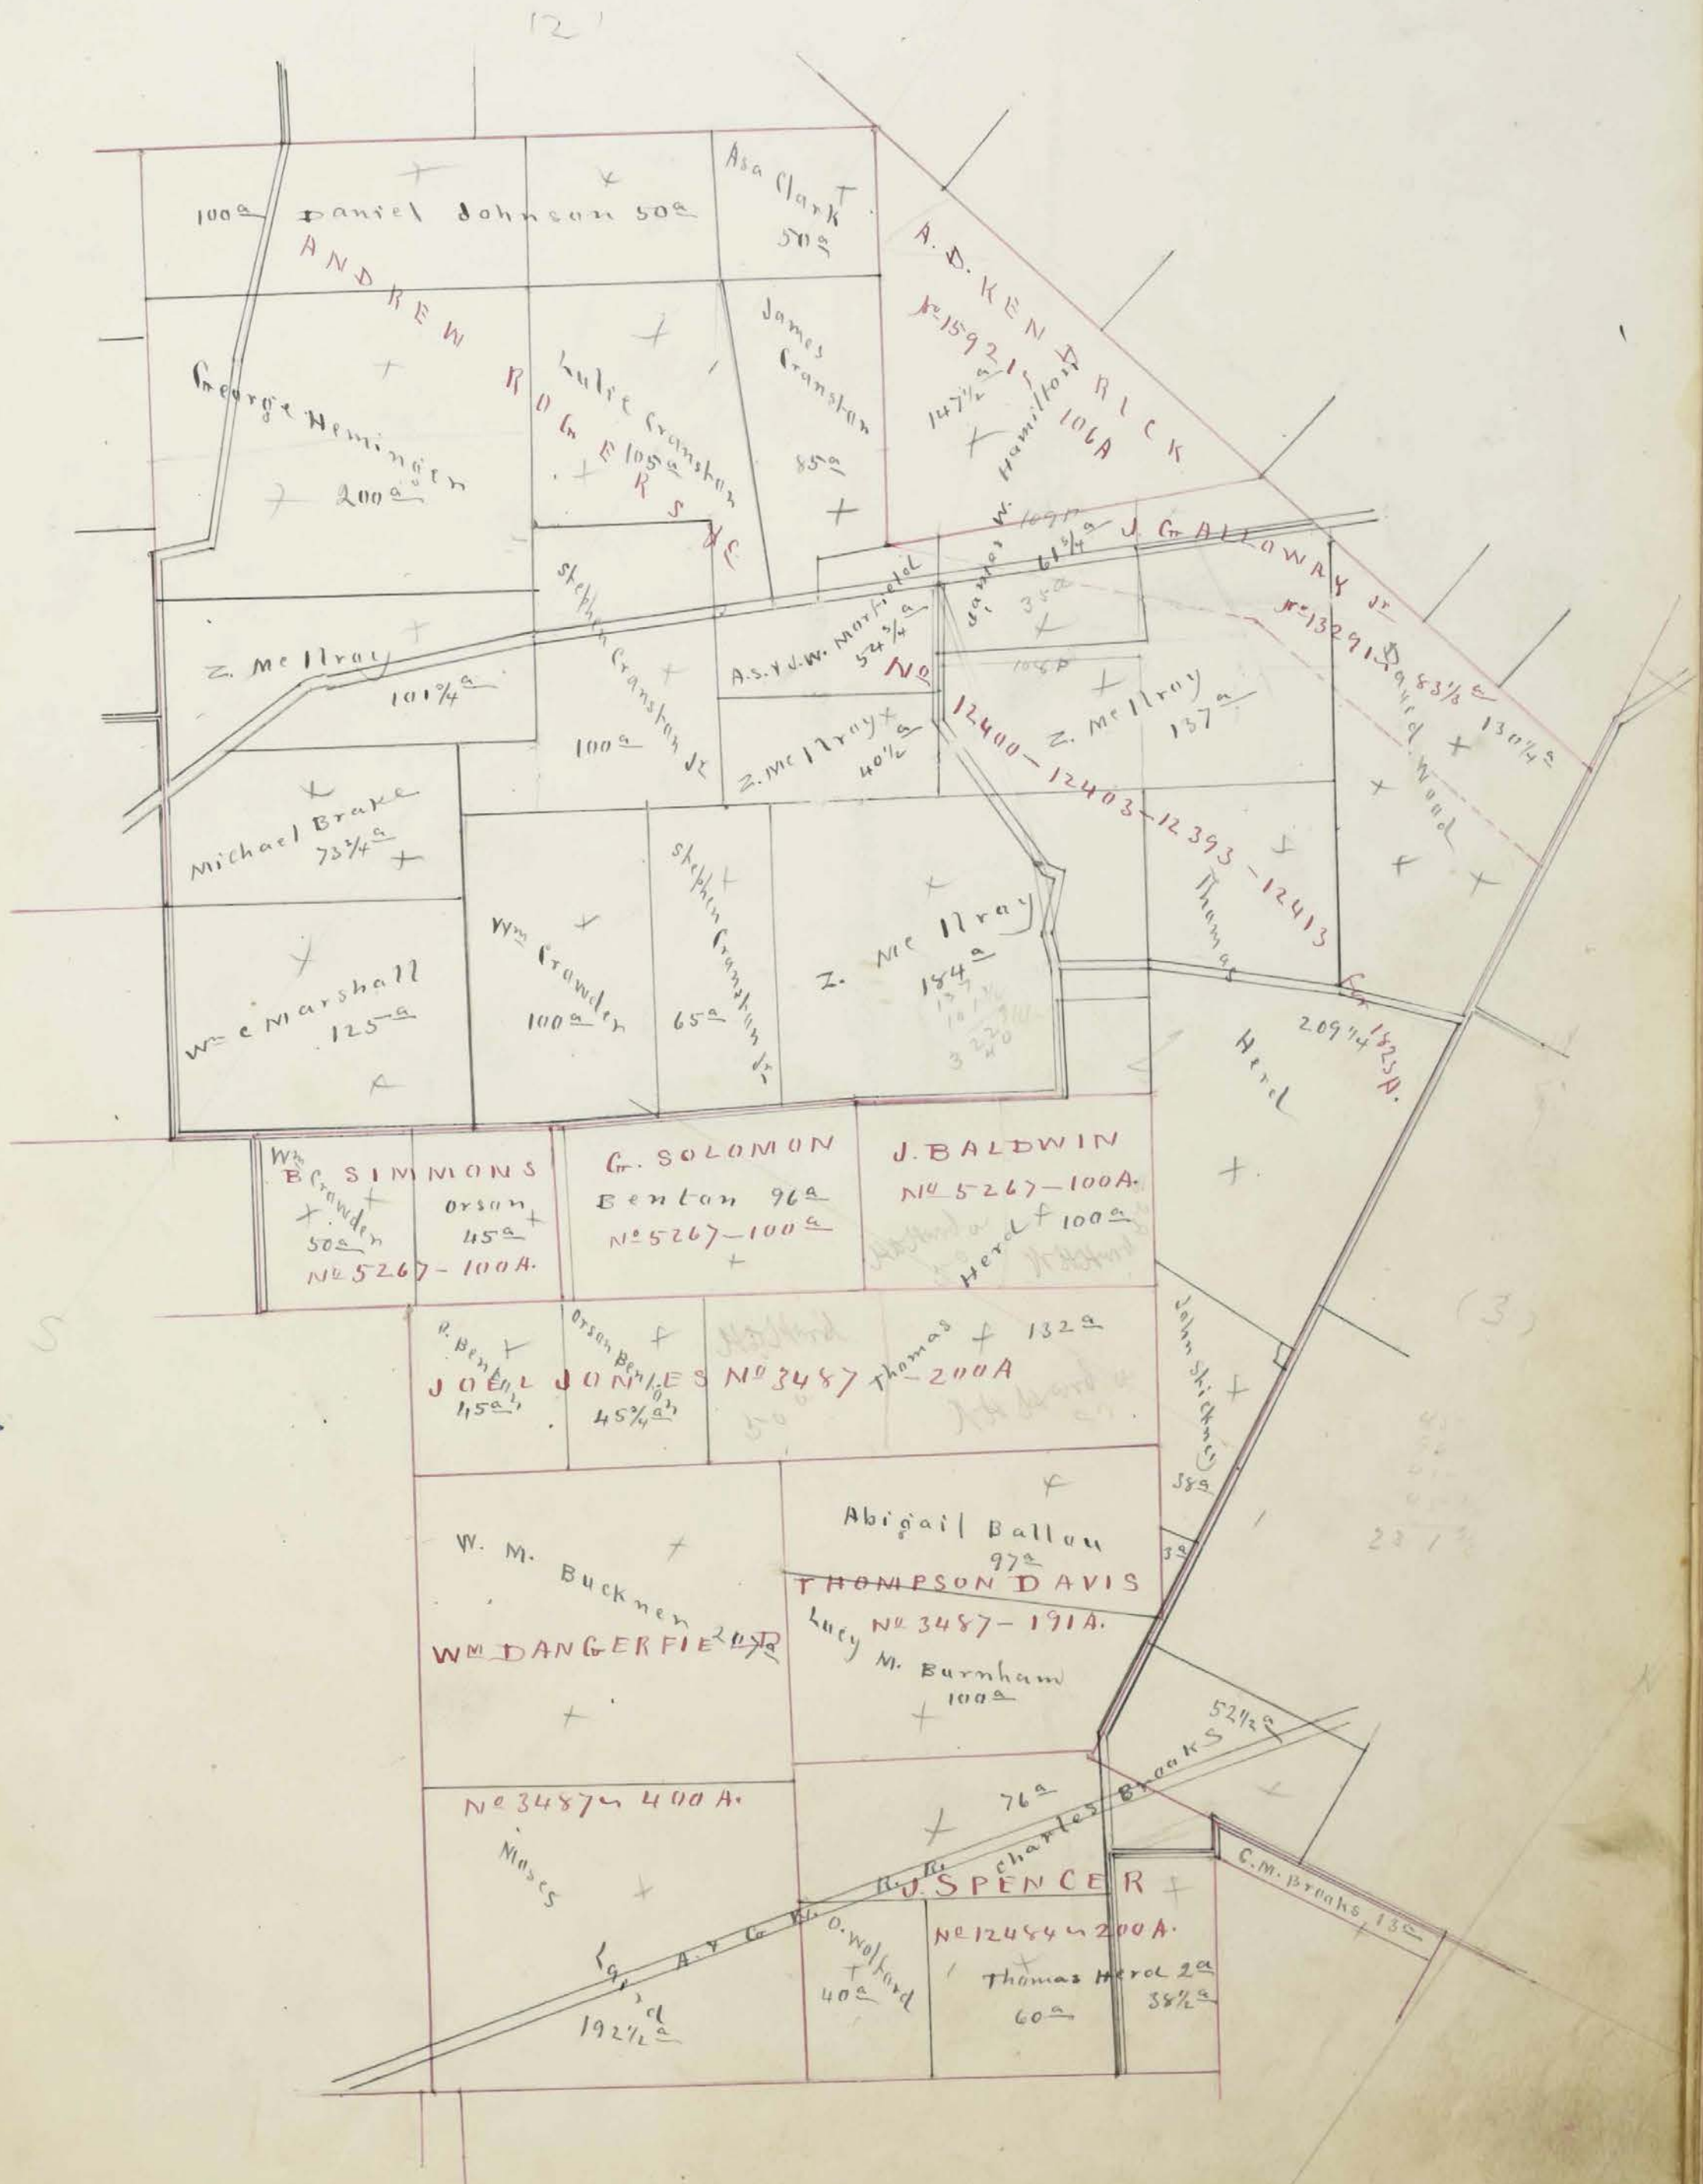 12
100a Daniel Johnson 50a
Asa Clark
50a
ANDREW ROGERS JR.
A. D. KENDRICK
No 15921,
106A
147 1/2 a
James W. Hamilton
George Heminger
200a
Lulie Cranston
105a
James Cranston
85a
109P
61 3/4 a
35a
J. GALLOWAY Jr
No 13291
83 1/3 a
David Wood
130 1/4 a
Z. McIlray
101 3/4 a
Stephen Cranston Jr
100a
A.S. & J.W. Morfield
54 3/4 a
No 12400-12403-12393-12413
Z. McIlray
40 1/2 a
108P
Z. McIlray
137a
Michael Brake
73 3/4 a
Wm C Marshall
125a
Wm Crawder
100a
Stephen Cranston Jr
65a
Z. McIlray
184a
Thomas Herd
209 1/4
1823A.
Wm Crawder
50a
B. SIMMONS
Orson
45a
No 5267-100A.
G. SOLOMON
Benton 96a
No 5267-100a
J. BALDWIN
No 5267-100A.
Herd 100a
O. Benton
45a
Orson Benton
45 3/4 a
JOEL JONES No 3487-200A
Thomas 132a
John Stickney
38a
(3)
W. M. Bucknen
207a
Wm DANGERFIELD
Abigail Ballou
97a
3a
THOMPSON DAVIS
No 3487-191A.
Lucy M. Burnham
100a
No 3487~400A.
Moses Laird
192 1/2 a
76a
Charles Brooks
52 1/2 a
A. & G. W. R. R.
J. SPENCER
No 12484~200A.
O. Wolford
40a
Thomas Herd 2a
60a
38 1/2 a
C. M. Brooks 13a